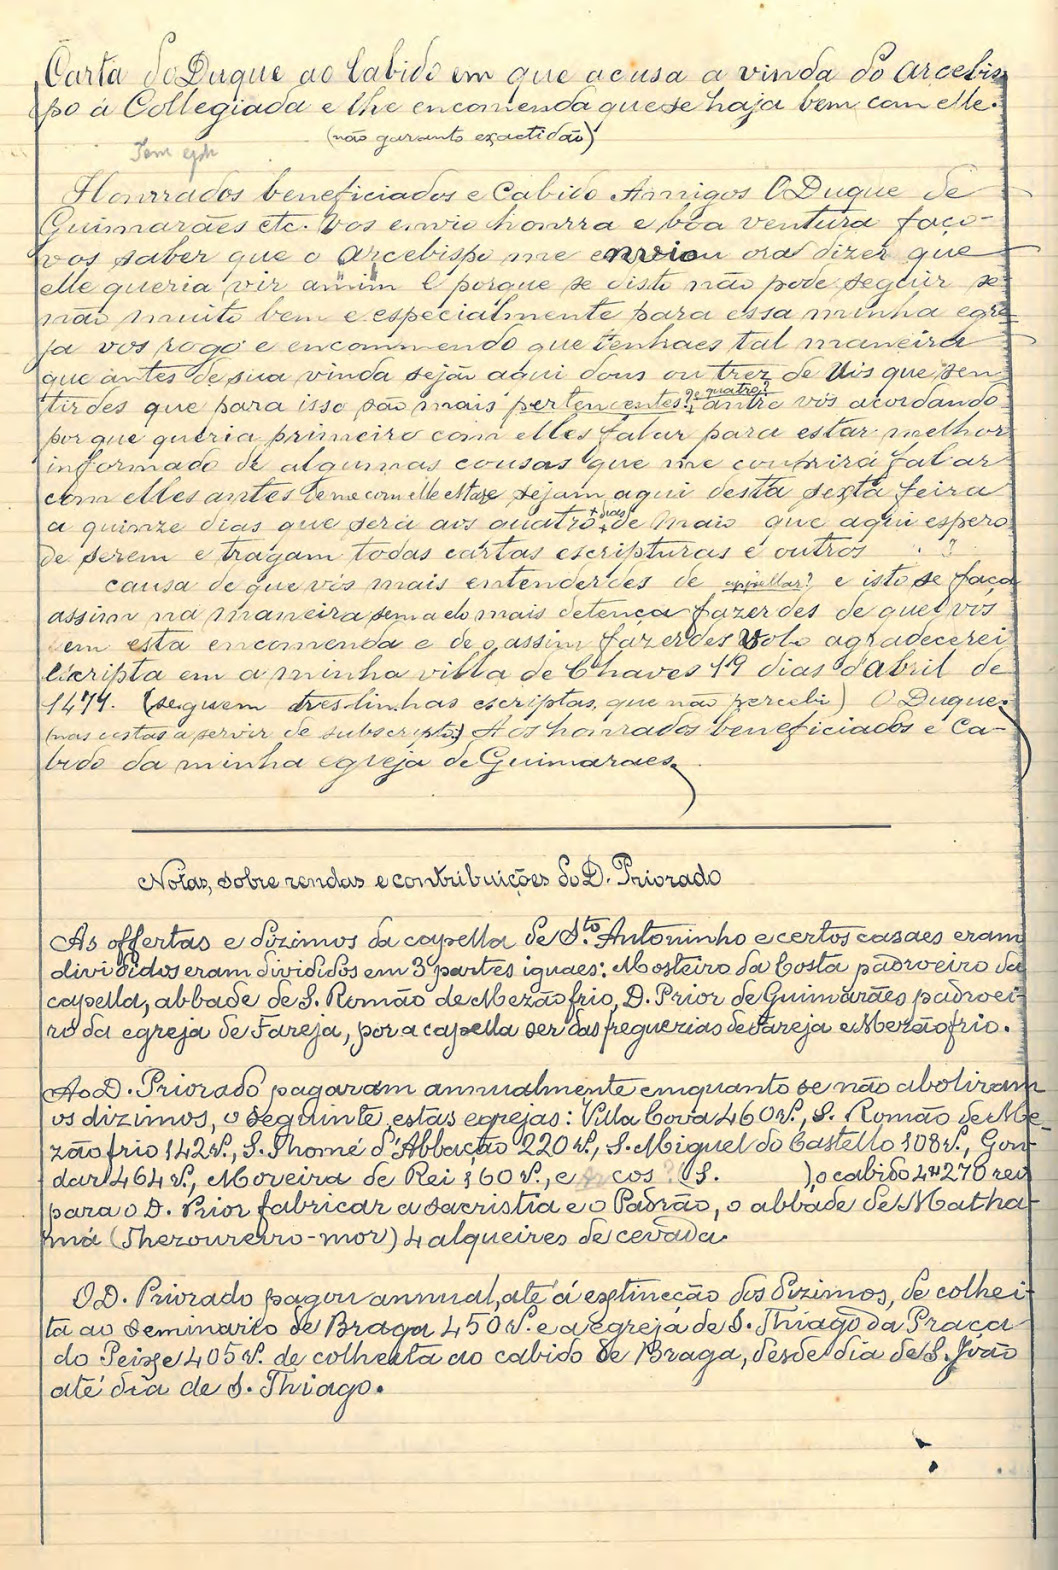 Carta do Duque ao Cabido em que acusa a vinda do arcebis
po á Collegiada e lhe encomenda que se haja bem com elle.
(não garanto exactidão)
Honrrados beneficiados e Cabido Amigos O Duque de
Guimarães etc. vos envio honrra e boa ventura faço-
vos saber que o arcebispo me enviou ora dizer que
elle queria vir a mim E porque se disto não pode seguir se
não muito bem e especialmente para essa minha egre
ja vos rogo e encommendo que tenhaes tal maneira
que antes de sua vinda sejão aqui dous ou trez de Vós que sen
tirdes que para isso são mais pertencentes? e quatro? antre vós acordando
porque queria primeiro com elles falar para estar melhor
informado de algumas cousas que me comprirá falar
com elles antes que me com elle estare sejam aqui desta sexta feira
a quinze dias que será aos quatro + dias + de Maio que aqui espero
de serem e tragam todas cartas escripturas e outros . ?
causa de que vós mais entenderdes de appellar? e isto se faça
assim na maneira sem a elo mais detença fazerdes de que vos
em esta encomenda e de o assim fazerdes volo agradecerei
Escripta em a minha villa de Chaves 19 dias d'abril de
1474. (seguem tres linhas escriptas, que não percebi) O Duque.
(nas costas a servir de subscripto) Aos honrados beneficiados e Ca-
bido da minha egreja de Guimaraes.
Notas, sobre rendas e contribuições do D. Priorado
As offertas e dizimos da capella de S.to Antoninho e certos casaes eram
divididos eram divididos em 3 partes iguaes: Mosteiro da Costa padroeiro da
capella, abbade de S. Romão de Mezãofrio, D. Prior de Guimarães padroei-
ro da egreja de Fareja, por a capella ser das freguezias de Fareja e Mezãofrio.
Ao D. Priorado pagaram annualmente emquanto se não aboliram
os dizimos, o seguinte, estas egrejas: Villa Cova 460 rs., S. Romão de Me-
zãofrio 142 rs., S. Thomé d'Abbação 220 rs., S. Miguel do Castello 108 rs., Gon
dar 464 rs., Moreira de Rei 160 rs., e cos? (S. ), o cabido 4$270 reis
para o D. Prior fabricar a sacristia e o Padrão, o abbade de Matha-
má (Thezoureiro-mor) 4 alqueires de cevada.
O D. Priorado pagou annual, até á extincção dos dizimos, de colhei-
ta ao Seminario de Braga 450 rs. e a egreja de S. Thiago da Praça
do Peixe 405 rs. de colheita ao cabido de Braga, desde dia de S. João
até dia de S. Thiago.